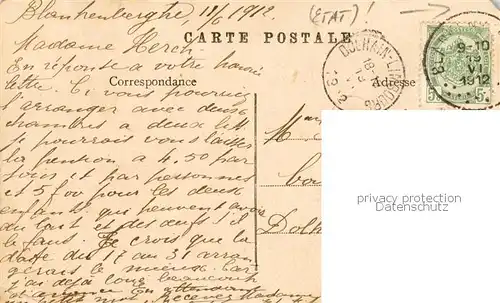 Blankenberghe, 12/6 1912.
(ETAT)!
CARTE POSTALE
Madame Herch
En réponse à votre honorée
lettre. Ci vous pourriez
Correspondance
Adresse
l'arranger avec deux
chambres a deux lits
je pourrais vous laisser
la pention a 4,50 par
jour et par personnes
et 5f00 pour les deux
enfants. qui peuvent avoir
du lait et des œufs! il
le faut. Je crois que la
date du 17 au 31 arran
gerais le mieux. Car
j'ai déjà loué beaucoup
En attendant
Recevez Madame
DOLHAIN-LIMBOURG
9-10
13
VI
1912
5
Dolh
privacy protection
Datenschutz